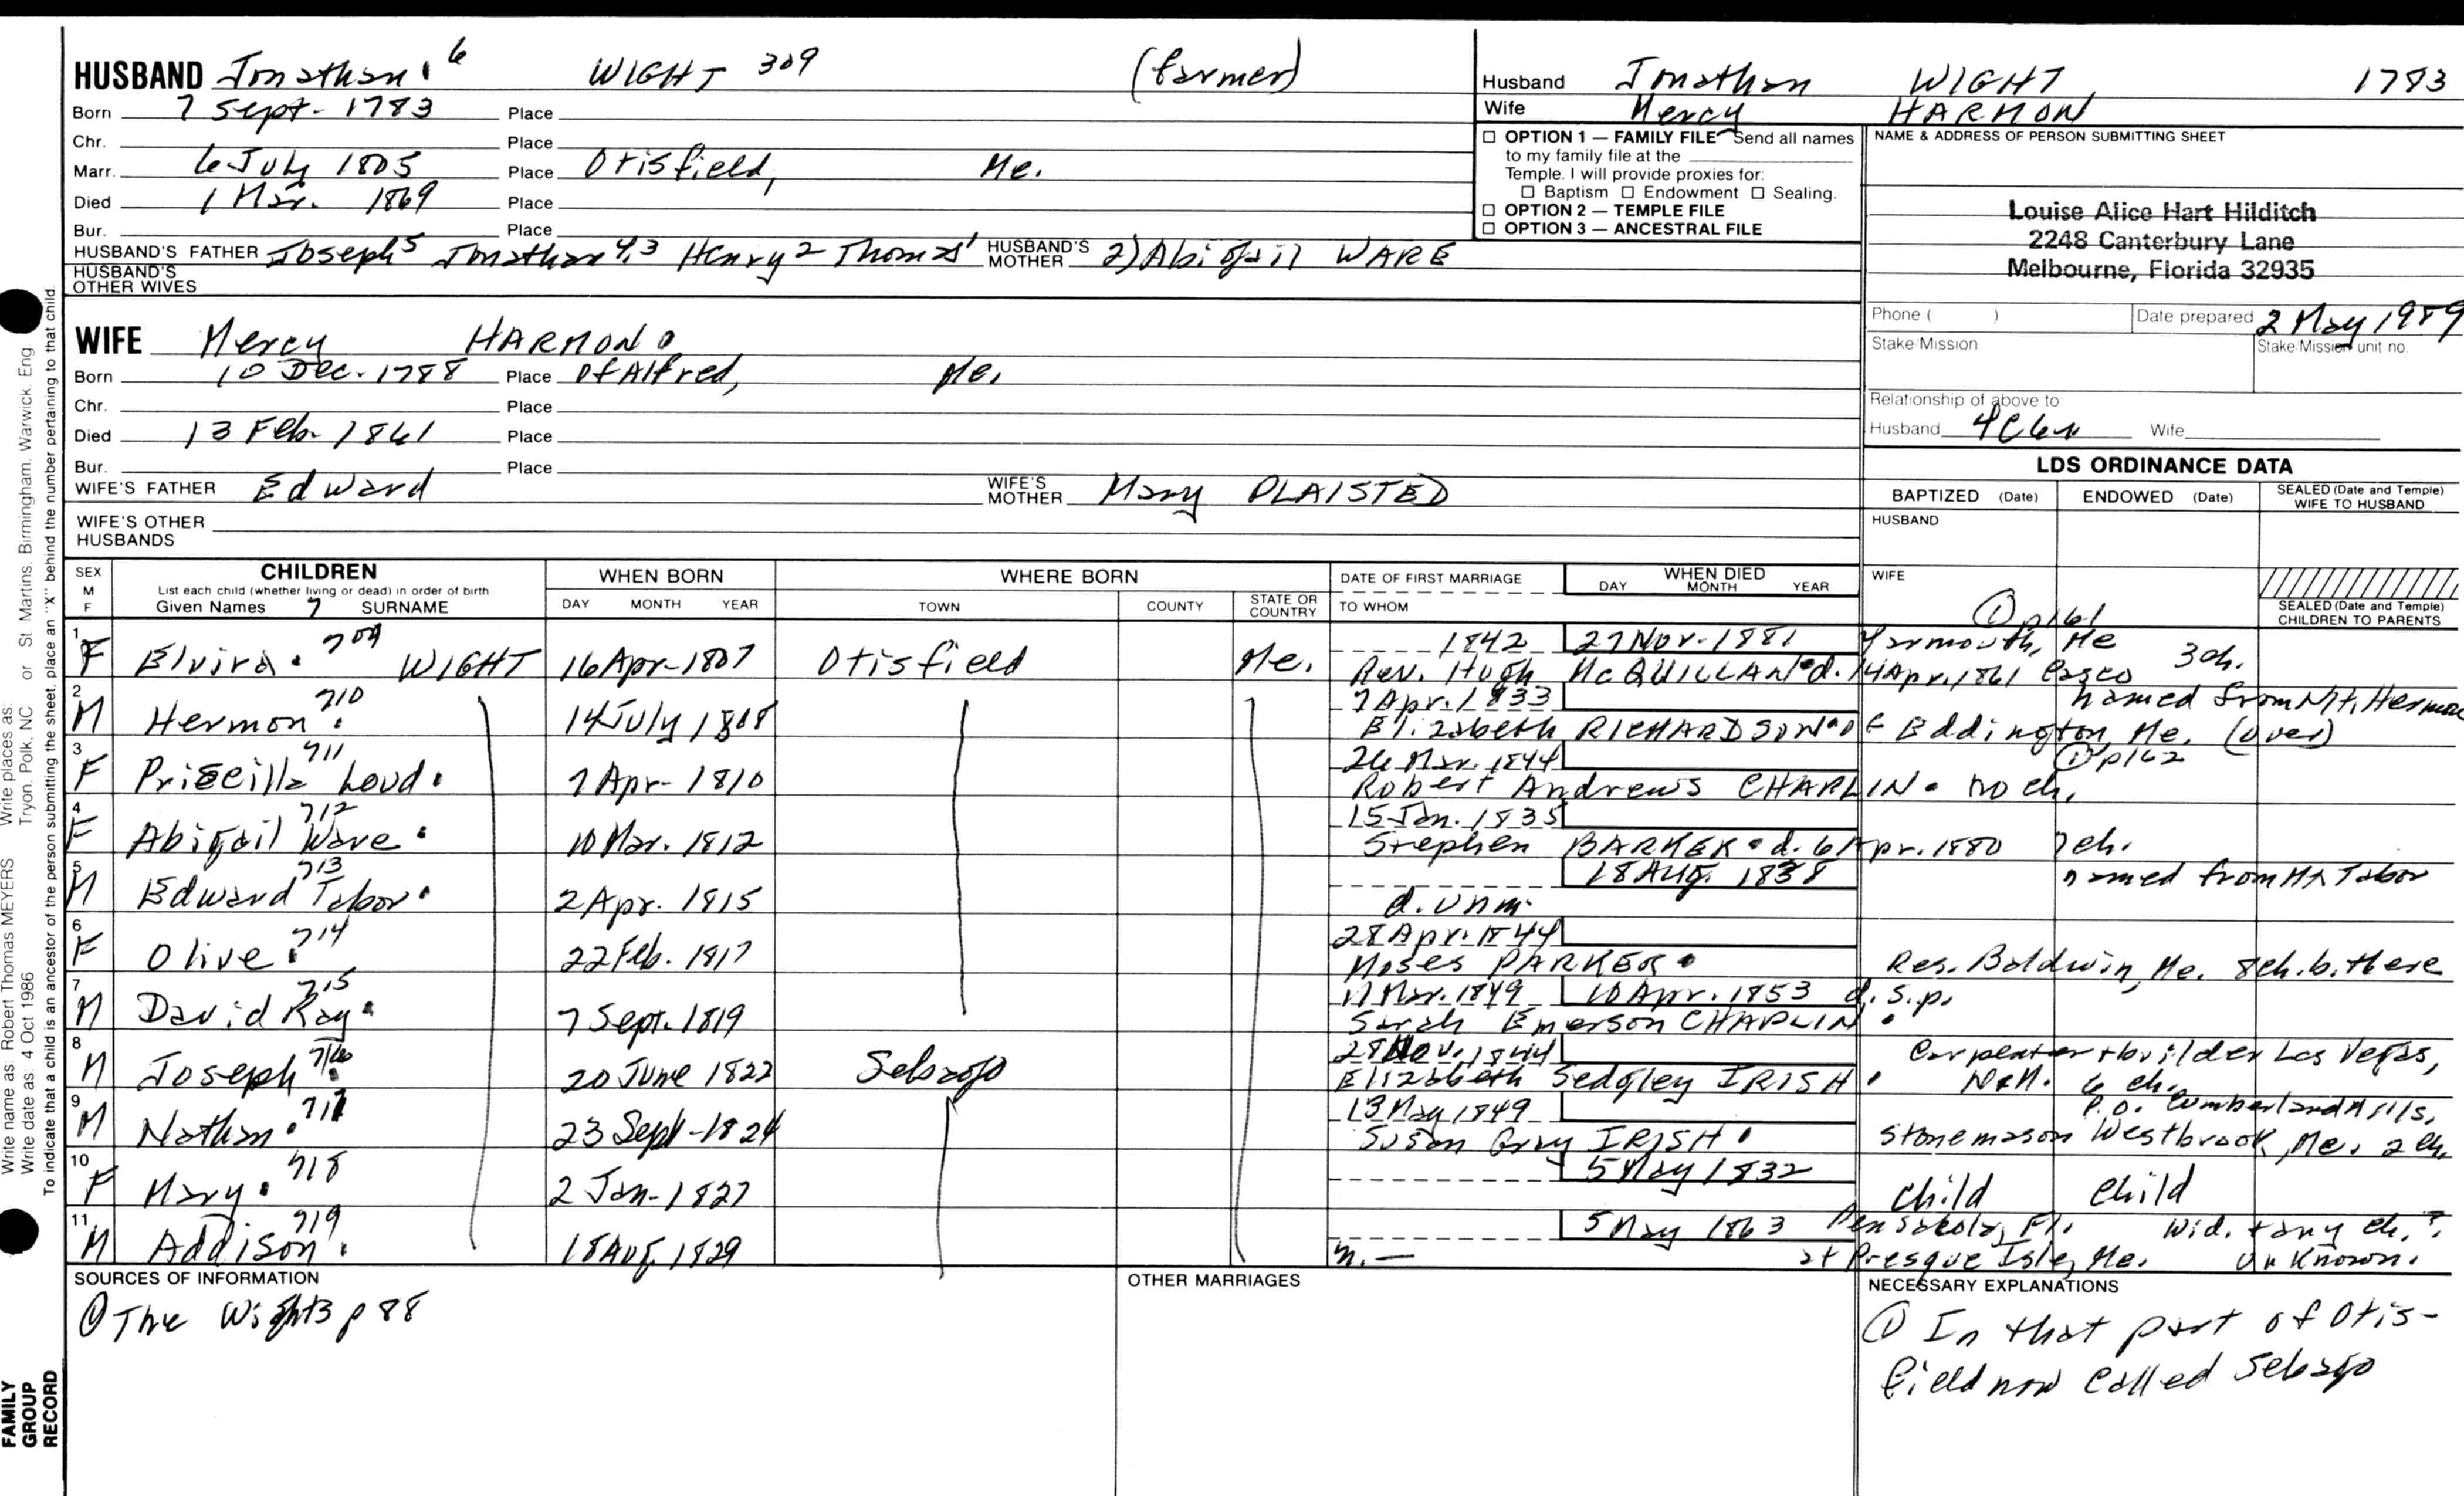 HUSBAND Jonathan. 6 WIGHT 309 (farmer)
Born 7 Sept. 1783 Place
Chr. Place
Marr. 6 July 1805 Place Otisfield, Me.
Died 1 Mar. 1869 Place
Bur. Place
HUSBAND'S FATHER Joseph5 Jonathan4,3 Henry2 Thomas1 HUSBAND'S MOTHER 2) Abigail WARE
HUSBAND'S OTHER WIVES
Husband Jonathan WIGHT 1783
Wife Mercy HARMON
☐ OPTION 1 — FAMILY FILE Send all names
to my family file at the
Temple. I will provide proxies for:
☐ Baptism ☐ Endowment ☐ Sealing.
☐ OPTION 2 — TEMPLE FILE
☐ OPTION 3 — ANCESTRAL FILE
NAME & ADDRESS OF PERSON SUBMITTING SHEET
Louise Alice Hart Hilditch
2248 Canterbury Lane
Melbourne, Florida 32935
Phone ( ) Date prepared 2 May 1989
Stake/Mission Stake/Mission unit no.
Relationship of above to
Husband 4C6R Wife
WIFE Mercy HARMON.
Born 10 Dec. 1788 Place of Alfred, Me.
Chr. Place
Died 13 Feb. 1861 Place
Bur. Place
WIFE'S FATHER Edward WIFE'S MOTHER Mary PLAISTED
WIFE'S OTHER HUSBANDS
LDS ORDINANCE DATA
BAPTIZED (Date) ENDOWED (Date) SEALED (Date and Temple) WIFE TO HUSBAND
HUSBAND
WIFE
SEALED (Date and Temple) CHILDREN TO PARENTS
SEX M F
CHILDREN
List each child (whether living or dead) in order of birth
Given Names 7 SURNAME
WHEN BORN
DAY MONTH YEAR
WHERE BORN
TOWN COUNTY STATE OR COUNTRY
DATE OF FIRST MARRIAGE
TO WHOM
WHEN DIED
DAY MONTH YEAR
① p161
1 F Elvira. 709 WIGHT 16 Apr. 1807 Otisfield Me. 1842 27 Nov. 1881 Yarmouth, Me 3 ch.
Rev. Hugh McQUILLAN. d. 14 Apr. 1861 Casco
2 M Hermon. 710 14 July 1808 7 Apr. 1833 named from Mt. Hermon
Elizabeth RICHARDSON. of Eddington, Me. (over)
3 F Priscilla Loud. 711 7 Apr. 1810 26 Mar. 1844 ① p162
Robert Andrews CHAPLIN. no ch.
4 F Abigail Ware. 712 10 Mar. 1812 15 Jan. 1835
Stephen BARKER. d. 6 Apr. 1880 7 ch.
5 M Edward Tabor. 713 2 Apr. 1815 18 Aug. 1838 named from Mt Tabor
d. unm.
6 F Olive. 714 22 Feb. 1817 28 Apr. 1844
Moses PARKER. Res. Baldwin, Me. 8 ch. b. there
7 M David Ray. 715 7 Sept. 1819 11 Mar. 1849 10 Apr. 1853 d. s.p.
Sarah Emerson CHAPLIN.
8 M Joseph. 716 20 June 1822 Sebago 28 Nov. 1844 Carpenter + builder Las Vegas,
Elizabeth Sedgley IRISH. N.M. 6 ch.
9 M Nathan. 717 23 Sept. 1824 13 May 1849 P.O. Cumberland Mills,
Susan Gray IRISH. Stonemason Westbrook, Me. 2 ch.
10 F Mary. 718 2 Jan. 1827 5 May 1832
child child
11 M Addison. 719 18 Aug. 1829 5 May 1863 Pensacola, Fl. Wid. + any ch.?
m. — at Presque Isle, Me. Unknown.
SOURCES OF INFORMATION
① The Wights p 88
OTHER MARRIAGES
NECESSARY EXPLANATIONS
① In that part of Otis-
field now called Sebago
Write name as: Robert Thomas MEYERS Write places as:
Write date as: 4 Oct 1986 Tryon, Polk, NC or St. Martins, Birmingham, Warwick, Eng.
To indicate that a child is an ancestor of the person submitting the sheet, place an "X" behind the number pertaining to that child.
FAMILY
GROUP
RECORD